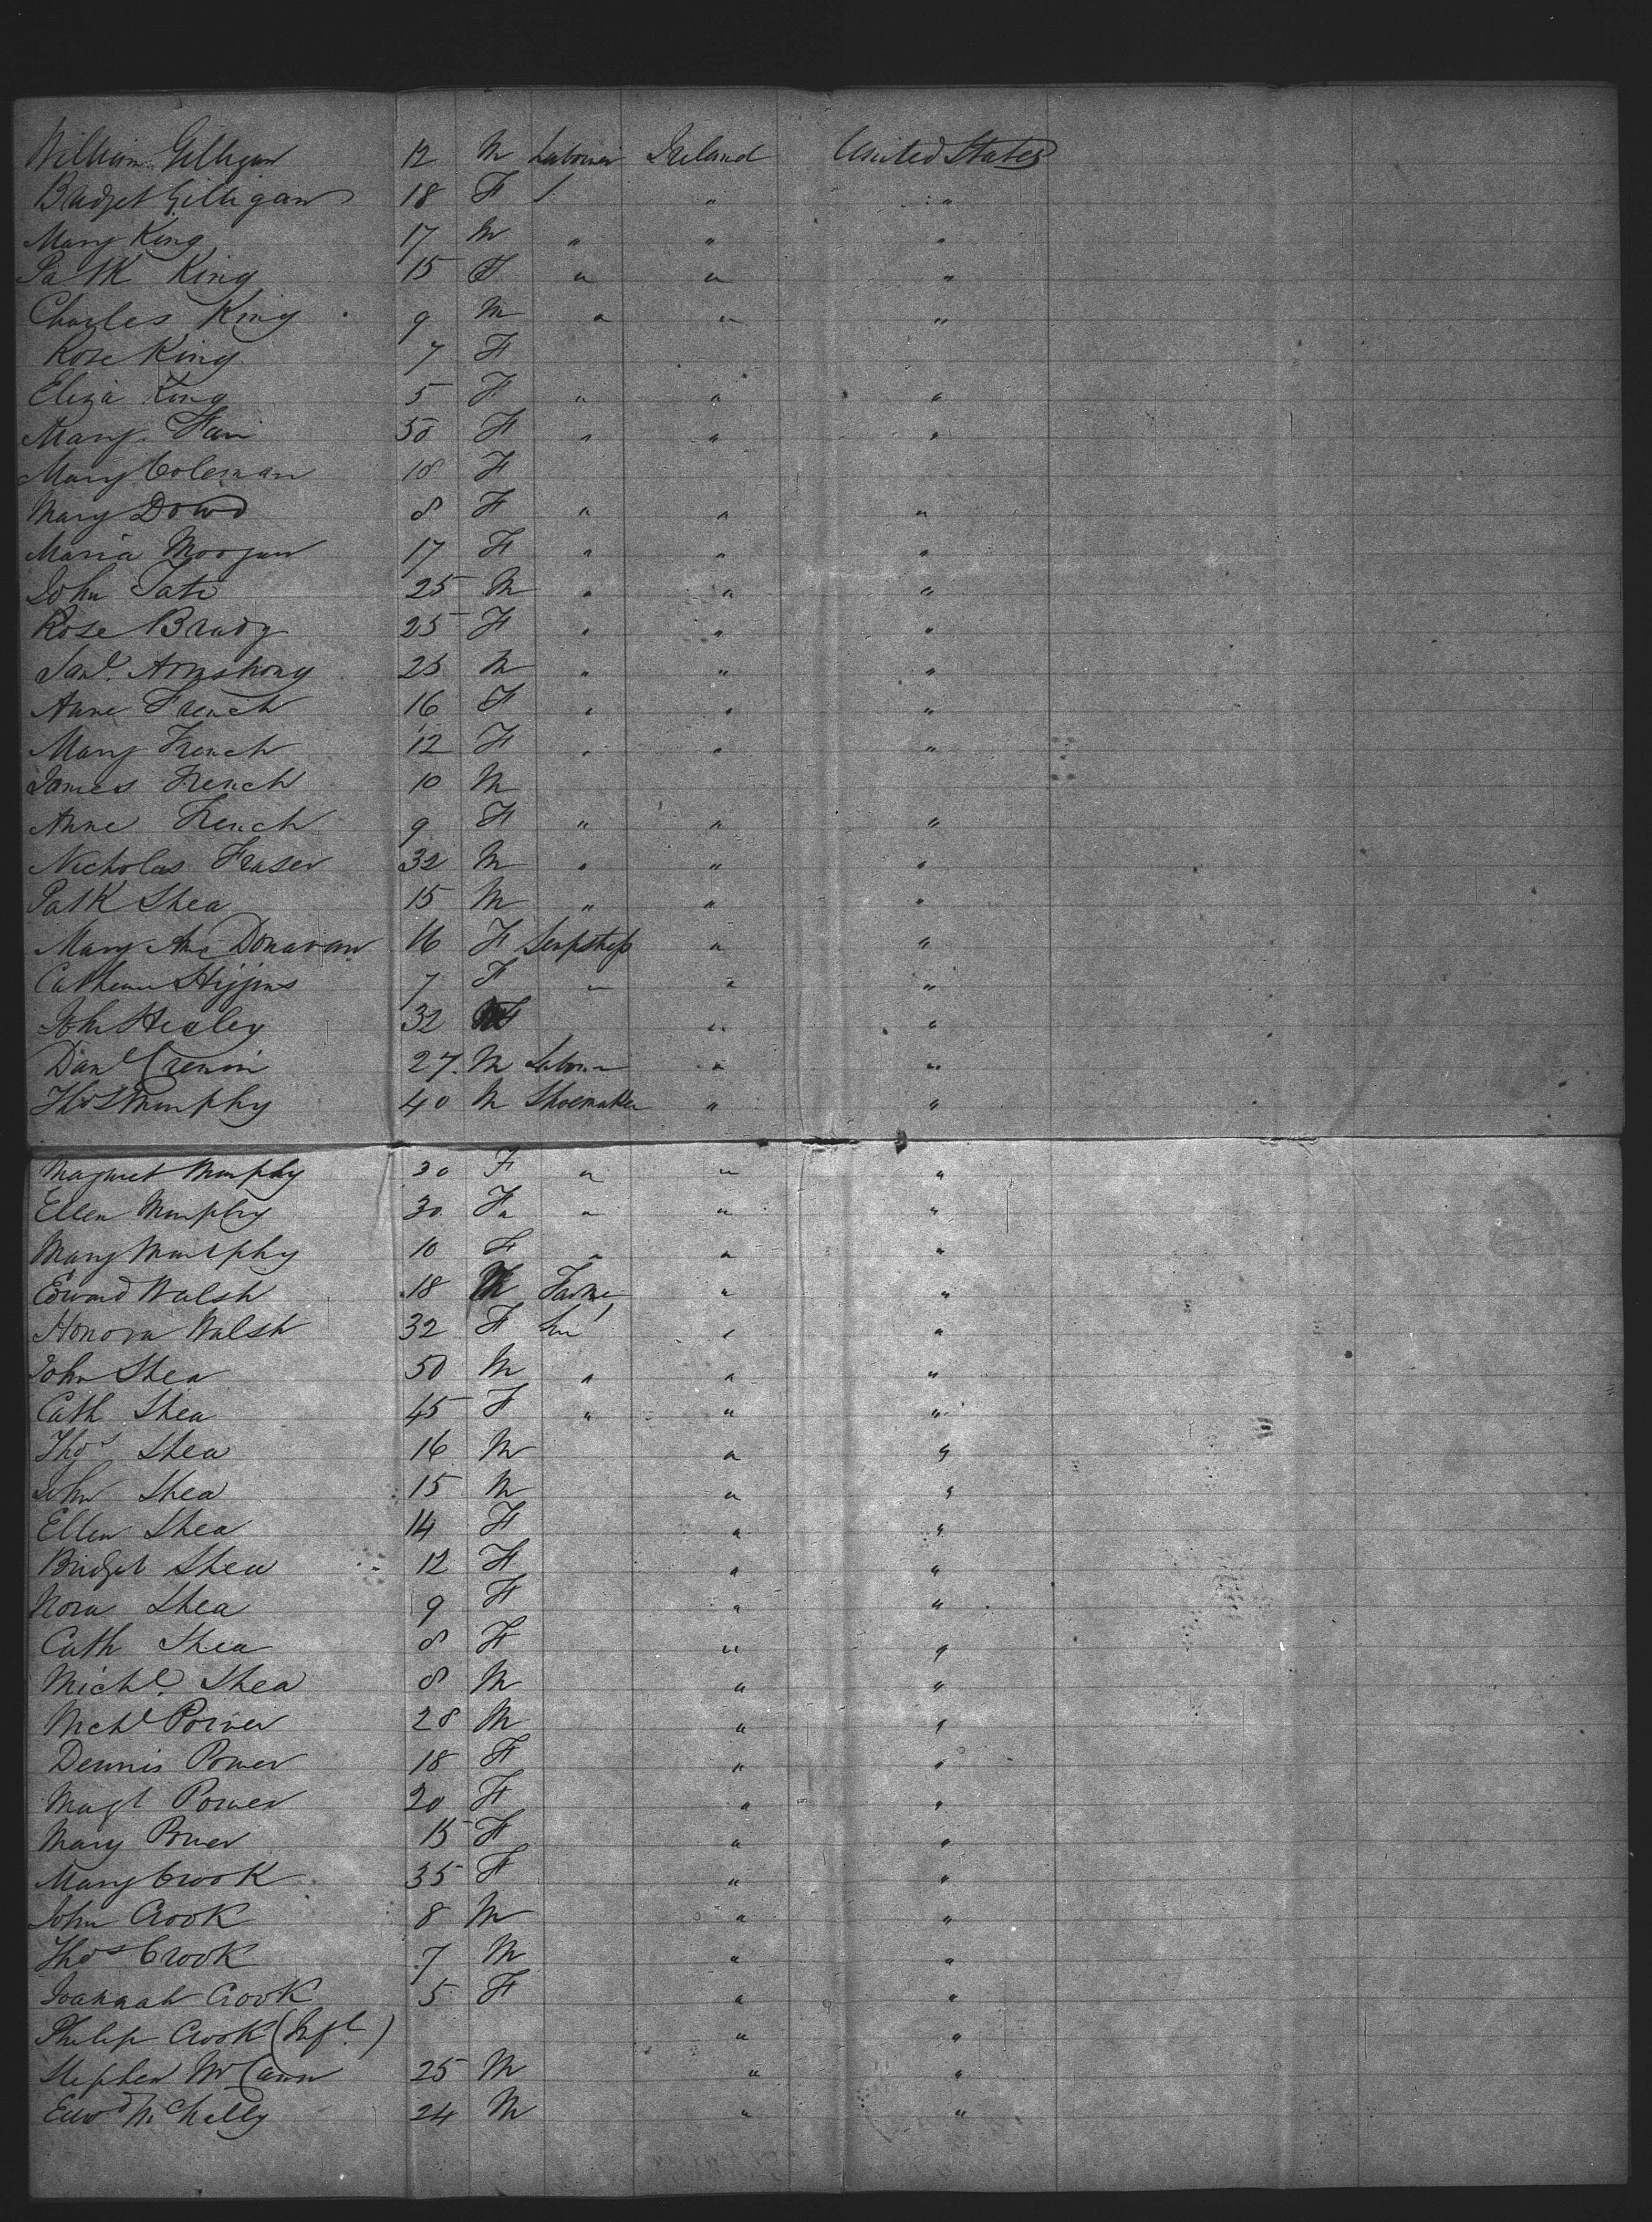 William Gilligan 12 M Labourer Ireland United States
Bridget Gilligan 18 F / " "
Mary King 17 M " " "
Patk King 15 F " " "
Charles King 9 M " " "
Rose King 7 F
Eliza King 5 F " " "
Mary 50 F " " "
Mary Coleman 18 F
Mary Dowd 8 F " " "
Maria Morgan 17 F " " "
John Tate 25 M " " "
Rose Brady 25 F " " "
Saml. Armstrong 25 M " " "
Anne French 16 F " " "
Mary French 12 F " " "
James French 10 M
Anne French 9 F " " "
Nicholas Fraser 32 M " " "
Patk Shea 15 M " " "
Mary Ann Donavan 16 F " "
Catherine Higgins 7 F " " "
John Healey 32 " "
Danl Cremin 27. M Labourer " "
Thos Murphy 40 M Shoemaker " "
Magaret Murphy 30 F " " "
Ellen Murphy 30 F " " " "
Mary Murphy 10 F " " "
Edward Walsh 18 M Farmer " "
Honora Walsh 32 F " "
John Shea 50 M " " "
Cath Shea 45 F " " "
Thos Shea 16 M " "
John Shea 15 M " "
Ellen Shea 14 F " "
Bridget Shea 12 F " "
Nora Shea 9 F " "
Cath Shea 8 F " "
Michl. Shea 8 M " "
Michl Power 28 M " "
Dennis Power 18 F " "
Magt Power 20 F " "
Mary Power 15 F " "
Mary Crook 35 F " "
John Crook 8 M " "
Thos Crook 7 M " "
Joannah Crook 5 F " "
Philip Crook (Inft.) " "
Stephen McCann 25 M " "
Edwd McNally 24 M " "